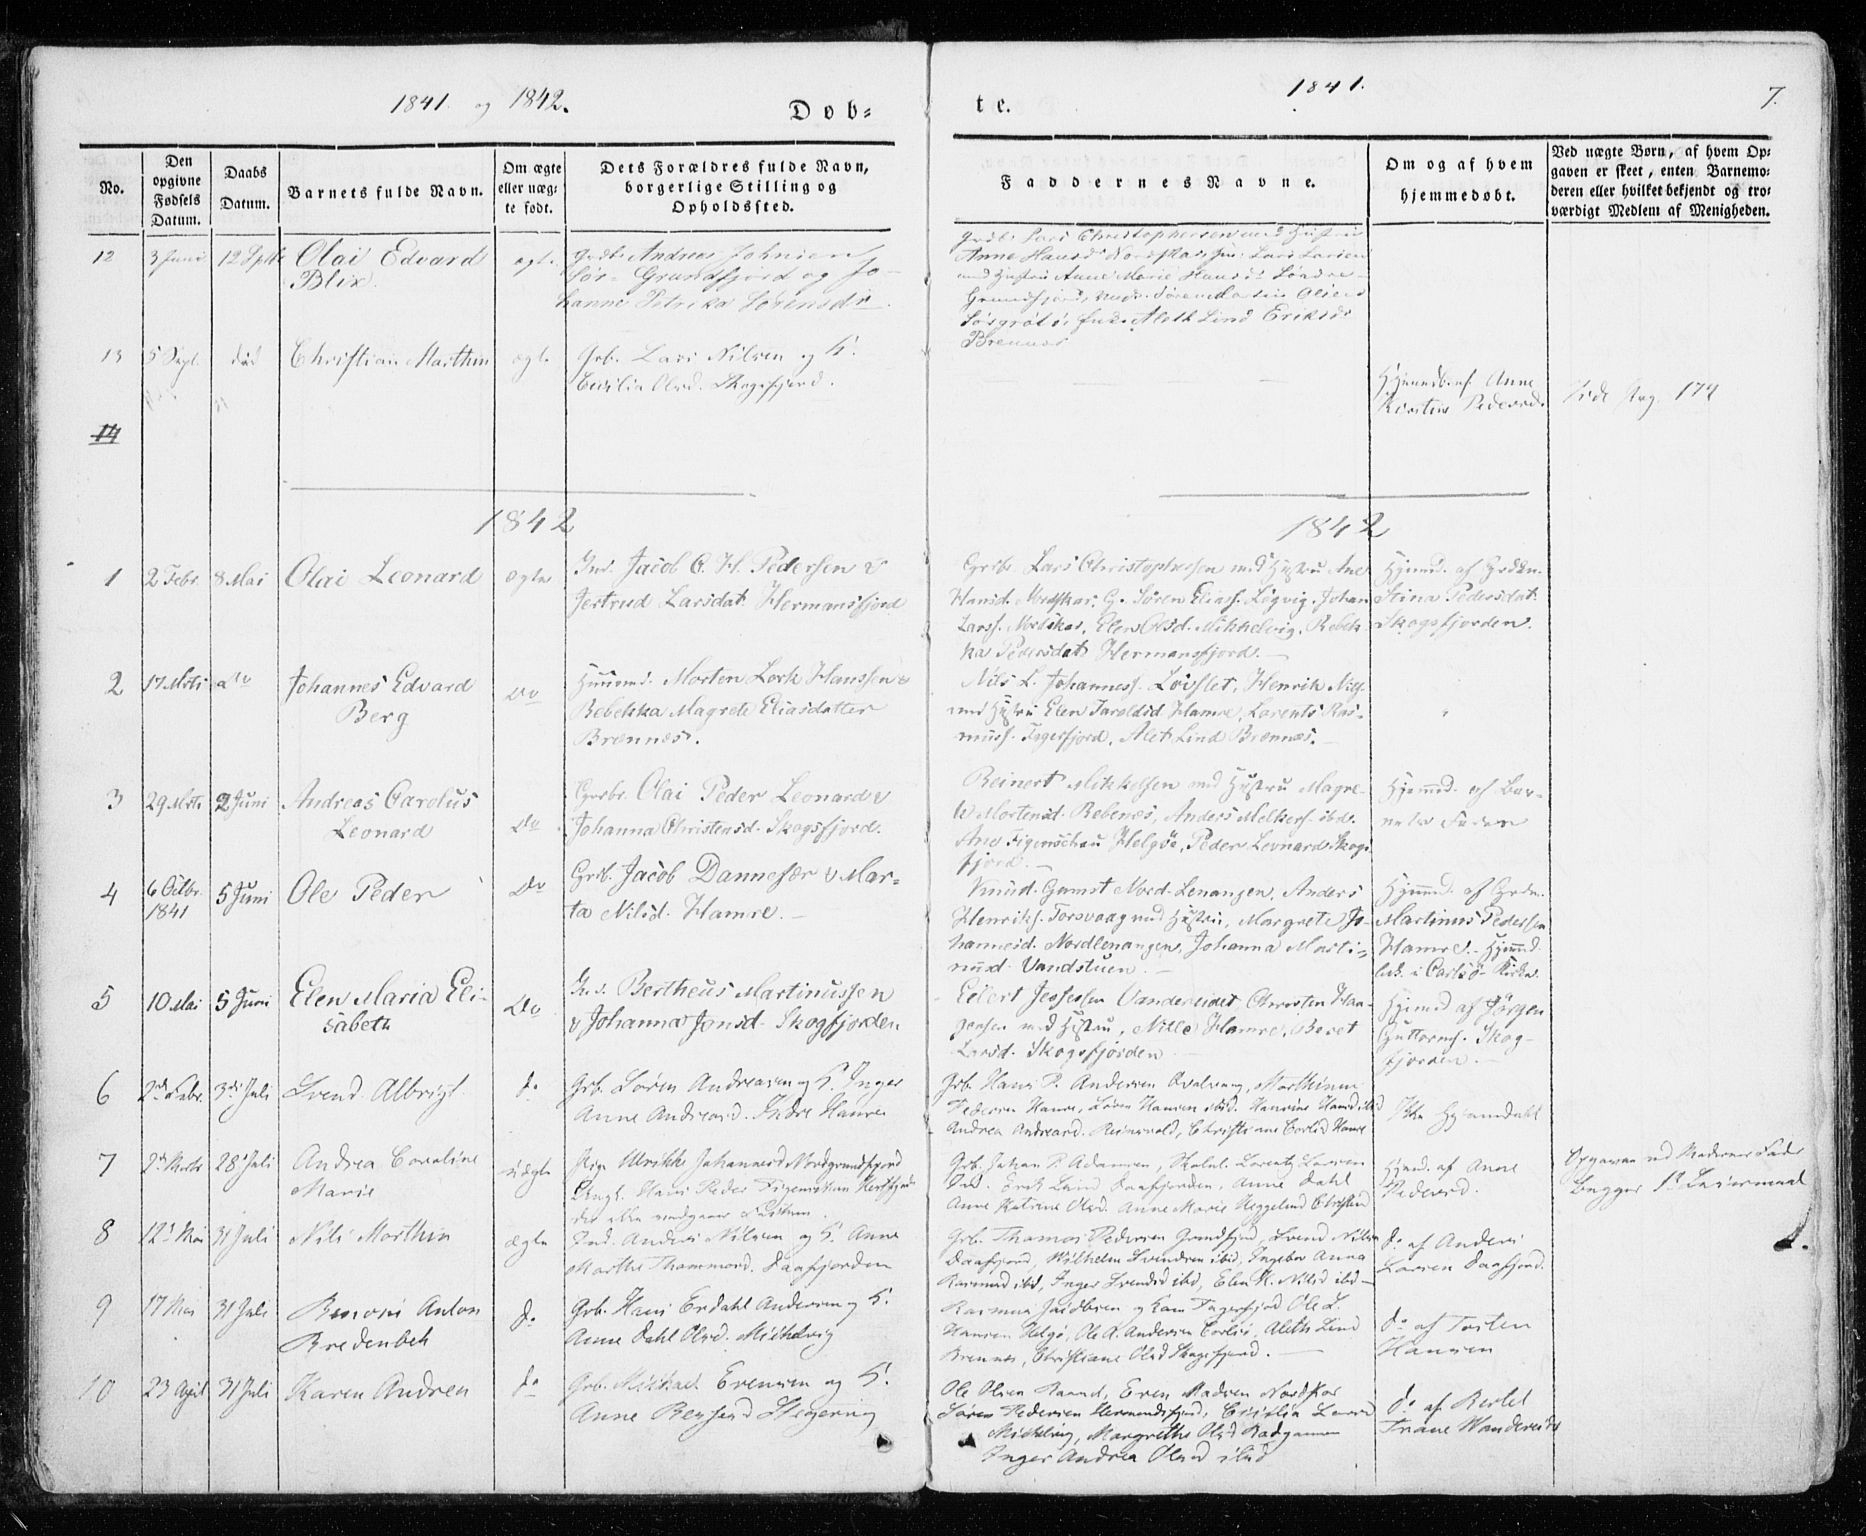 1841 og 1842.
Døb=
te.
1841.
7.
No.
Den
opgivne
Fødsels
Datum.
Daabs
Datum.
Barnets fulde Navn.
Om ægte
eller uæg-
te født.
Dets Forældres fulde Navn,
borgerlige Stilling og
Opholdssted.
Faddernes Navne.
Om og af hvem
hjemmedøbt.
Ved uægte Børn, af hvem Op=
gaven er skeet, enten Barnemo=
deren eller hvilket bekjendt og tro=
værdigt Medlem af Menigheden.
12 3 Juni 12 Septb Olai Edvard
Blix.
ægte
Grdb. Andreas Johnsen
Sør- Grundfjord og Jo-
hanne Petrika Sørensdr
Grdb. Lars Christophersen med Hustru
Anne Hansd Nordskar, Lars Larsen
med Hustru Anne Marie Hansd Søndre-
Grundfjord, Søren Martin Olsen
Aleth Lind Eriksd
Brennes
13 5 Sept. død Christian Marthin ægte
Grb. Lars Nilsen og H.
Cecilia Olsd. Skogsfjord.
Hjemdb. af Anne
Kirstin Pedersd.
Vide Pag. 174
14
1842
1842
1 2 Febr. 8 Mai Olai Leonard ægte
Ind. Jacob C. H. Pedersen &
Jertrud Larsdat. Hermansfjord
Grdb. Lars Christophersen med Hustru Ane
Hansd. Nordskar. G. Søren Eliass. Løgvig. Johan
Larss. Nordskar, Elen Olsd. Mikkelvig, Rebek-
ka Pedersdat Hermansfjord.
Hjemd. af Grdkn.
Stina Pedersdat.
Skogsfjorden.
2 17 Mrts do Johannes Edvard
Berg
Do
Huusmd. Morten Lork Hanssen &
Rebekka Magrete Eliasdatter
Brennes.
Nils L. Johanness. Løvslet, Henrik Nils.
med Hustru Elen Jaroldsd Hamre, Lorents Ras-
muss. Iggerfjord, Alet Lind Brennes.
"
3 29 Mrts 2 Juni Andreas Carolus
Leonard
Do
Grdbr. Olai Peder Leonard &
Johanna Christensd. Skogsfjord.
Reinert Mikkelsen med Hustru Magre-
te Mortensd. Rebenes, Anders Melkers. ibd.
Ane Figenschau Helgøe, Peder Leonard Skogs
fjord.
Hjemd. af Bar-
nets Fader
4 6 Octbr.
1841
5 Juni Ole Peder Do
Grdb. Jacob Dannefær & Mar-
ta Nilsd. Hamre.
Knud Gamst Nord-Lenangen, Anders
Henriks. Torsvaag med Hustru, Margrete Jo-
hannesd. Nordlenangen, Johanna Marti-
nusd. Vandstuen.
Hjemd. af Grdm.
Martinus Pedersen
Hamre. Hjemd.
bek. i Carlsø Kirke.
5 10 Mai 5 Juni Elen Maria Eli-
sabeth
Do
Ind. Bertheus Martinussen
& Johanna Jonsd. Skogfjorden
Eilert Jessesen Vandereidet Christen Haa-
gensen med Hustru, Nille Hamre, Beret
Larsd. Skogsfjorden
Hjemd af Jørgen
Guttorms. Skog-
fjorden.
6 2de Febr. 3die Juli Svend Albrigt do
Grb. Søren Andreasen og H. Inger
Anne Andreasd. Indre Hamre
Grb. Hans P. Andersen Qvalvaag, Morthinus
Pedersen Hamre, Søren Hansen ibid. Hansine Hansd ibid
Andrea Andreasd. Reinsvold, Christiane Carlsd Hamre
Ikke Hjemmdøbt
7 2de Marts 28de Juli Andrea Caroline
Marie
uægte
Pige Ulrikke Johannesd. Nordgrundfjord
Ungk. Hans Peder Figenschau Hertfjord
Grb. Johan P. Adamsen, Skolel. Lorentz Larsen
Ind. Erik Lund Daafjorden, Anne Dahl
Anne Katrine Olsd. Anne Marie Heggelund Christiansd
Hjemd. af Anne
Pedersd.
Opgaven ved Moderens Fader
begges 1ste Leiermaal
8 12te Mai 31 Juli Nils Morthin ægte
Ind. Anders Nilsen og H. Anne
Marthe Thommasd. Daafjorden
Grb. Thomas Pedersen Grundfjord, Svend Nilsen
Daafjord, Wilhelm Svendsen ibid, Ingebor Anna
Rasmusd ibid, Inger Svendsd ibd, Elen K. Nilsd ibd-
do af Anders
Larsen Daafjord.
9 17 Mai 31 Juli Benoni Anton
Bredenbek
do
Grb. Hans Erdahl Andersen og H.
Anne Dahl Olsd. Mickelvig
Rasmus Jacobsen og Kone Iggerfjord Ole L.
Hansen Helgø, Ole A. Andersen Carlsø, Aleth Lind
Brennes, Christiane Olsd Skogsfjord.
do af Torsten
Hansen
10 23 April 31 Juli Karen Andrea do
Grb. Mickael Evensen og H.
Anne Bersvend
Ole Olsen Raanes, Even Madsen Nordskar
Søren Pedersen Hermandsfjord, Cicilia Larsd
Mickelvig, Margrethe Olsd
Inger Andrea Olsd ibid
do af Bertel
Trane Wandereidet